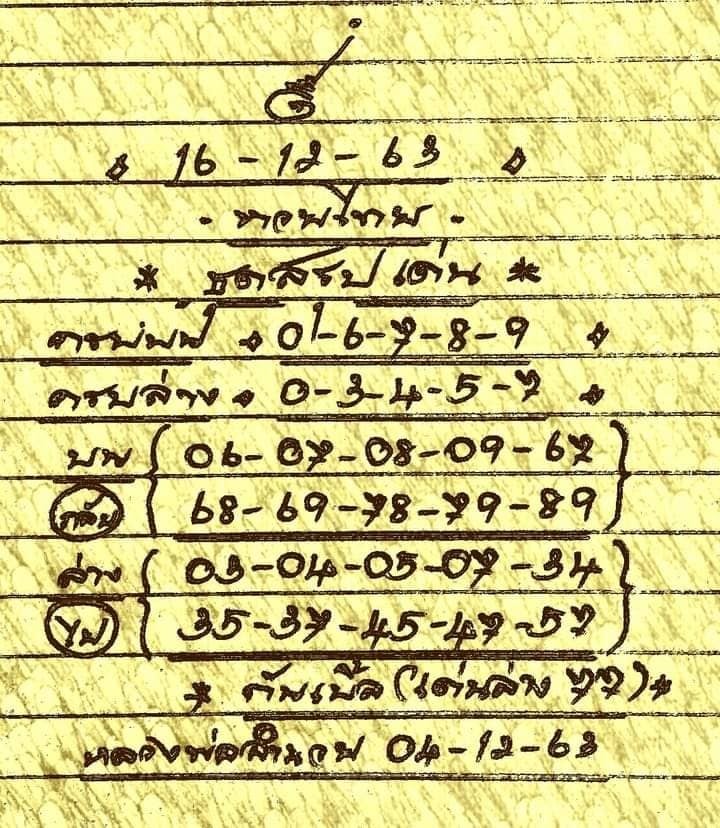 16 - 12 - 63
* ชุดสรุปเด่น *
ครบบน 0-6-7-8-9
ครบล่าง 0-3-4-5-7
บน 06-07-08-09-67
กลับ 68-69-78-79-89
ล่าง 03-04-05-07-34
ไป 35-37-45-47-57
* กันเบิ้ล (เด่นล่าง 77) *
หลวงพ่อสำนวน 04-12-63